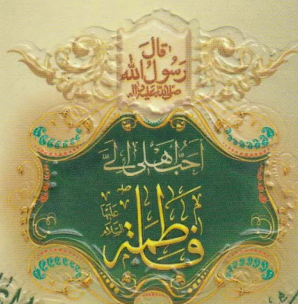 قال
رسول الله
صلى الله عليه وآله
أحب أهلي إلي
فاطمة
عليها السلام